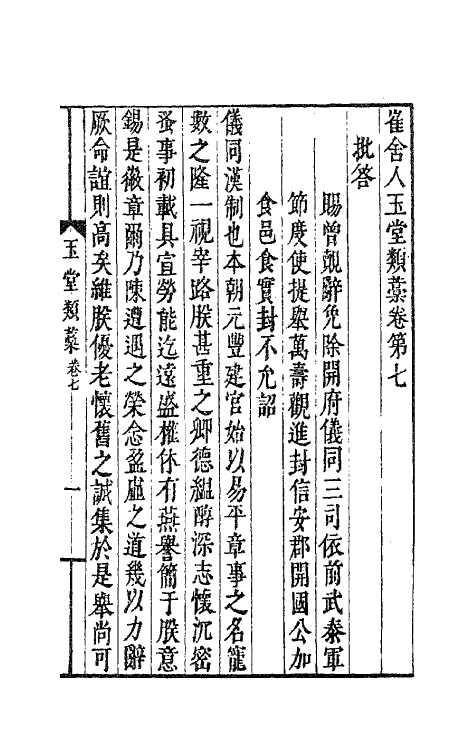 崔舍人玉堂類藁卷第七
批答
賜曾覿辭免除開府儀同三司依前武泰軍
節度使提舉萬壽觀進封信安郡開國公加
食邑食實封不允詔
儀同漢制也本朝元豐建官始以易平章事之名寵
數之隆一視宰路朕甚重之卿德縕醇深志懷沉密
蚤事初載具宣勞能迄遠盛權休有燕譽簡于朕意
錫是徽章爾乃陳遭遇之榮念盈虛之道幾以力辭
厥命誼則高矣維朕優老懷舊之誠集於是舉尚可
玉堂類藁 卷七
一